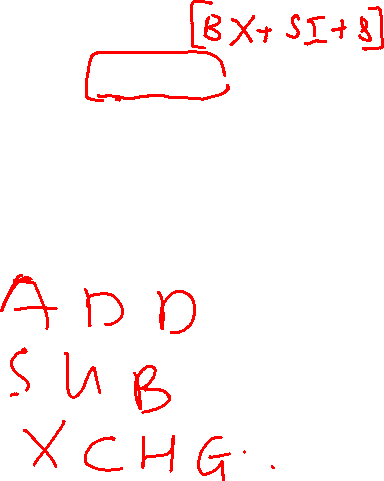 [BX+SI+8]
ADD
SUB
XCHG.